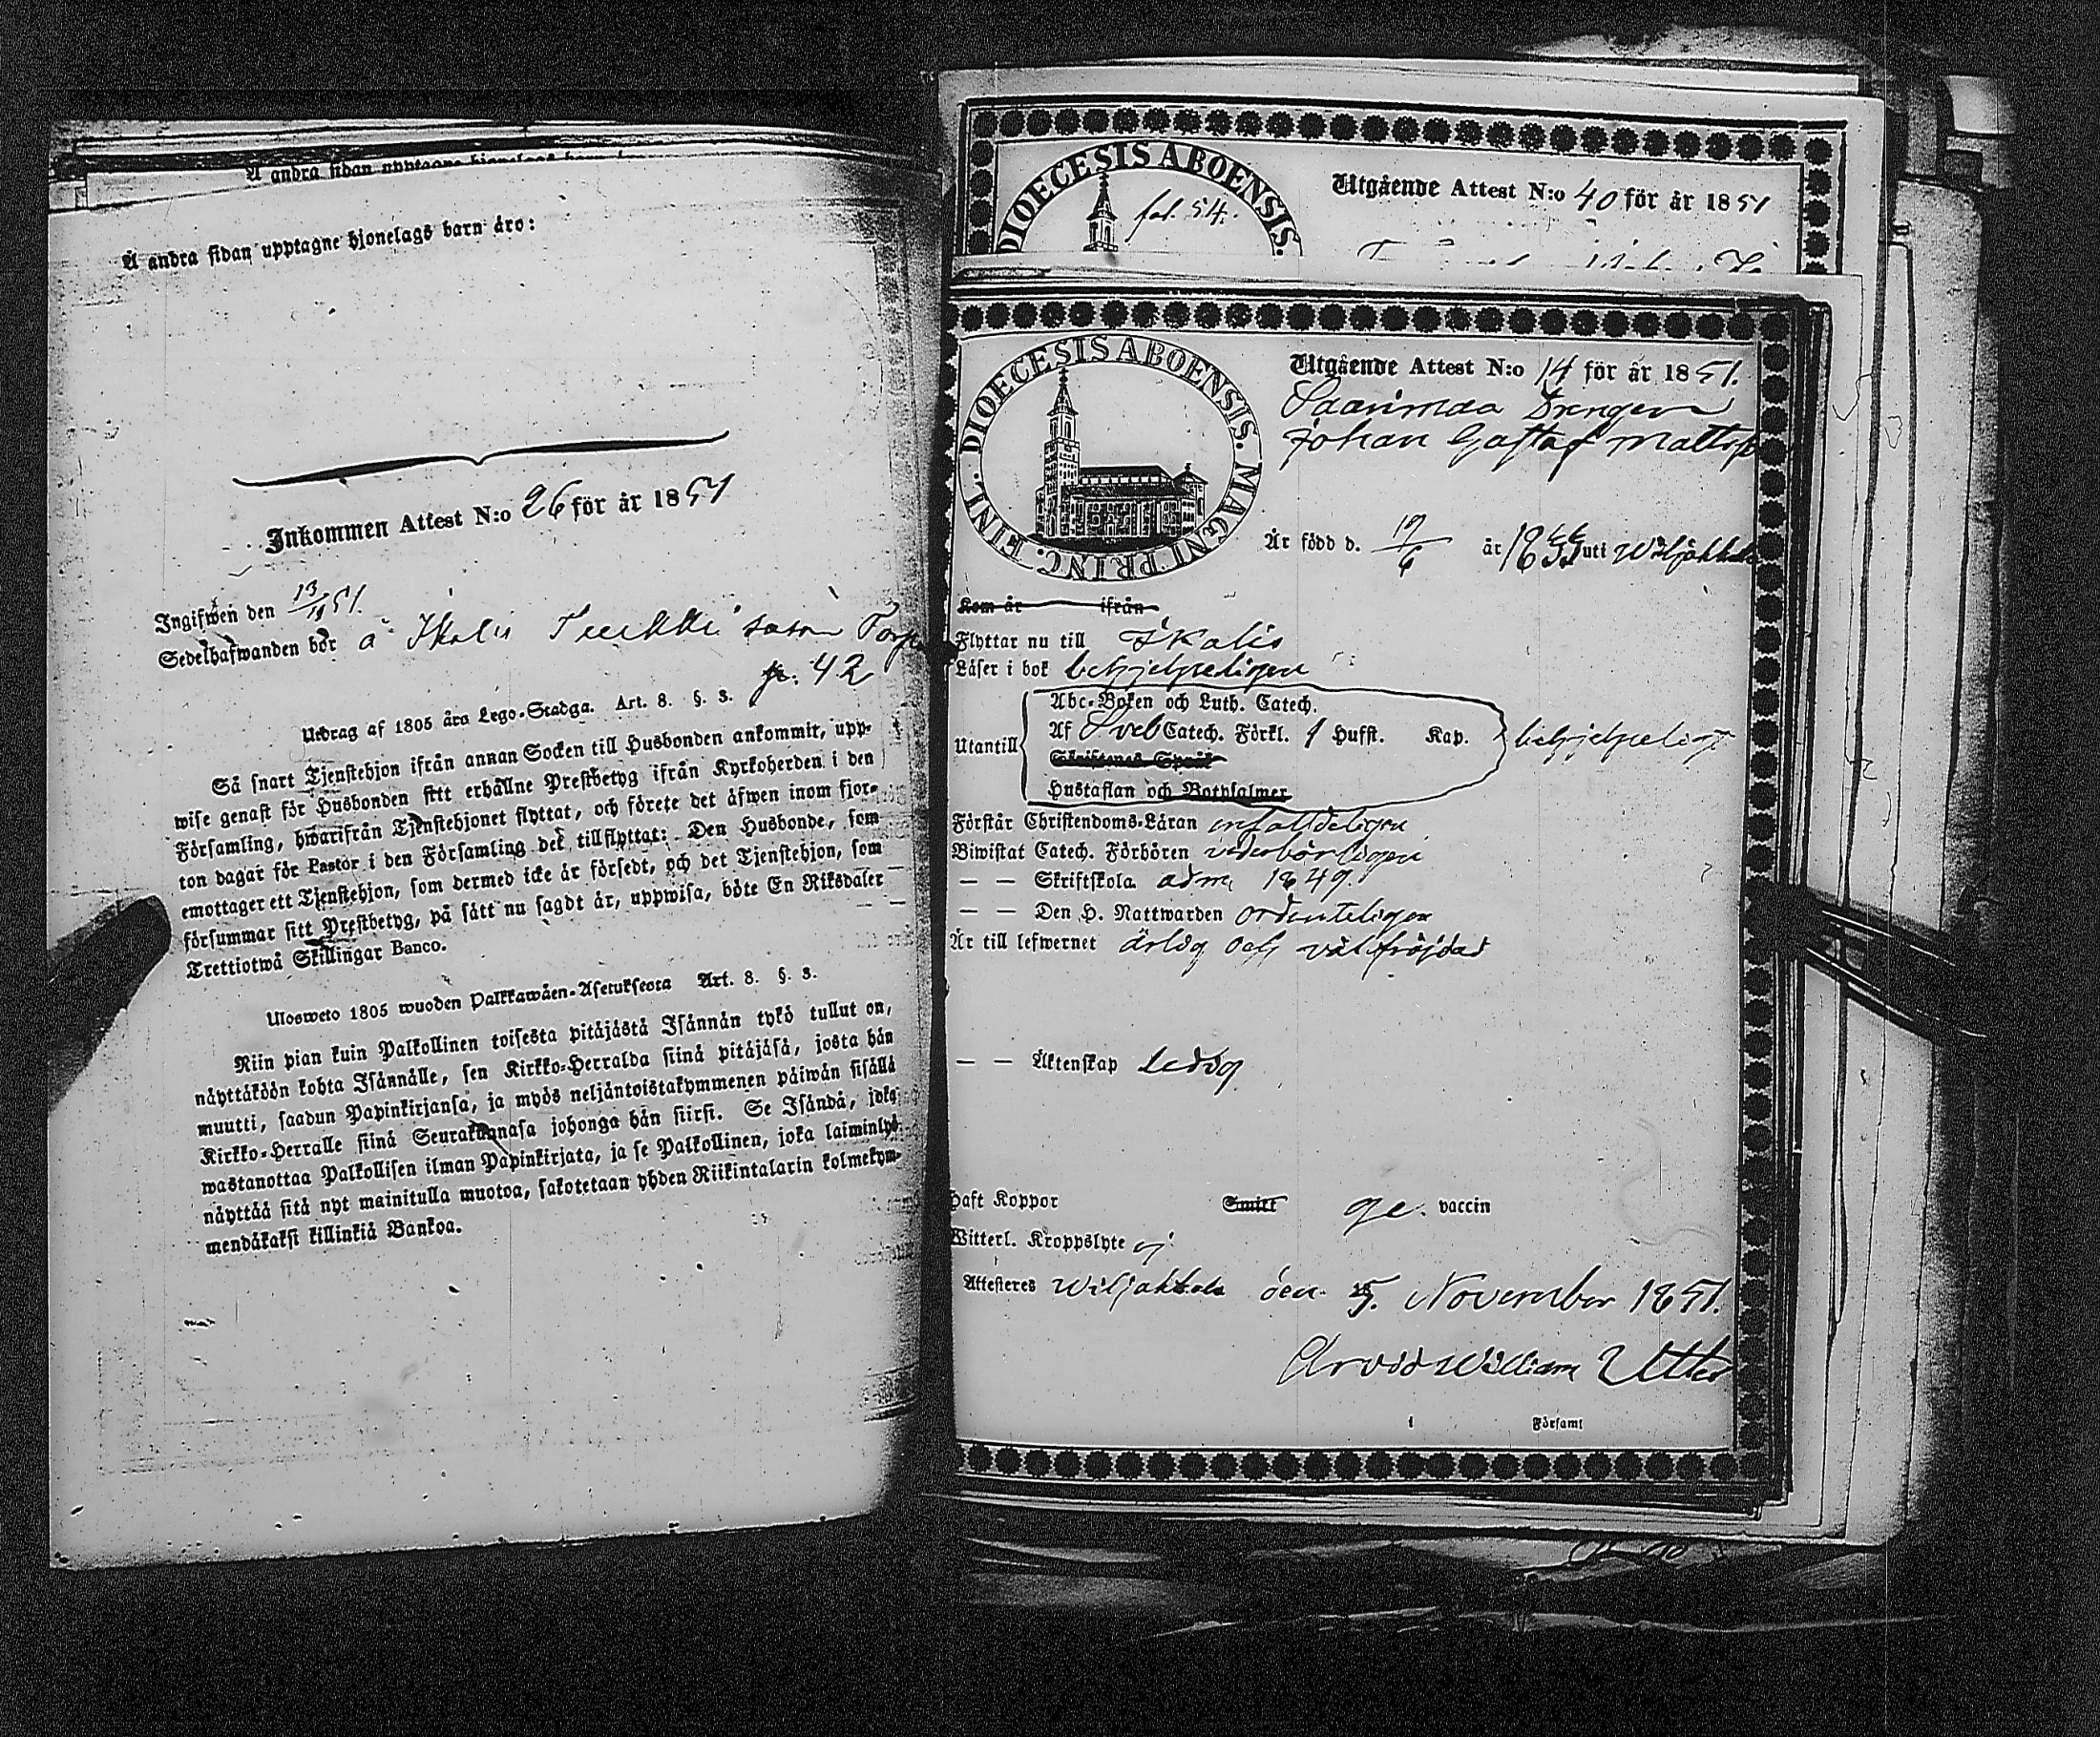 Å andra sidan upptagne hjonelags barn äro:
Å andra sidan upptagne hjonelags barn äro:
Inkommen Attest N:o 26 för år 1851
Ingifwen den 13/11 51.
Sedelhafwanden bör å Ikalis
p. 42
Utdrag af 1805 åra Lego-Stadga. Art. 8. §. 3.
Så snart Tjenstehjon ifrån annan Socken till Husbonden ankommit, upp-
wise genast för Husbonden sitt erhållne Prestbetyg ifrån Kyrkoherden i den
Församling, hwarifrån Tjenstehjonet flyttat, och förete det äfwen inom fjor-
ton dagar för Pastor i den Församling det tillflyttat: Den Husbonde, som
emottager ett Tjenstehjon, som dermed icke är försedt, och det Tjenstehjon, som
försummar sitt Prestbetyg, på sätt nu sagdt är, uppwisa, böte En Riksdaler
Trettiotwå Skillingar Banco.
Ulosweto 1805 wuoden Palkkawäen-Asetuksesta Art. 8. §. 3.
Niin pian kuin Palkollinen toisesta pitäjästä Isännän tykö tullut on,
näyttäköön kohta Isännälle, sen Kirkko-Herralda siinä pitäjäsä, josta hän
muutti, saadun Papinkirjansa, ja myös neljäntoistakymmenen päiwän sisällä
Kirkko-Herralle siinä Seurakunnasa johonga hän siirsi. Se Isändä, joka
wastanottaa Palkollisen ilman Papinkirjata, ja se Palkollinen, joka laiminlyö
näyttää sitä nyt mainitulla muotoa, sakotetaan yhden Riikintalarin kolmekym-
mendäkaksi killinkiä Bankoa.
DIOECESIS ABOENSIS.
fol. 54.
Utgående Attest N:o 40 för år 1851
DIOECESIS ABOENSIS. MAGNI PRINC. FINL.
Utgående Attest N:o 14 för år 1851.
Saarimaa Drengen
Johan Gustaf Matts
Är född d. 19/6 år 1833 uti Wiljakkala
Kom år ifrån
Flyttar nu till Ikalis
Läser i bok behjelpeligen
Utantill
Abc-Boken och Luth. Catech.
Af Sveb Catech. Förkl. 1 Hufst. Kap.
Skriftenes Språk
Hustaflan och Botpsalmer
behjelpeligt
Förstår Christendoms-Läran enfalldeligen
Biwistat Catech. Förhören vederbörligen
— — Skriftskola adm. 1849.
— — Den H. Nattwarden ordenteligen
Är till lefwernet ärlig och välfräjdad
— — Äktenskap ledig
Haft Koppor Smitt ge. vaccin
Witterl. Kroppslyte ej
Attesteres Wiljakkala den 5. November 1851.
Arvid William Utter
i Församl